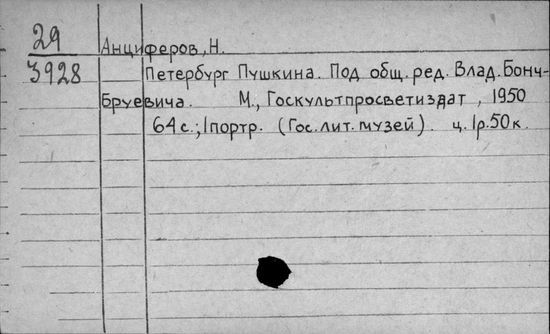 29
Анциферов, Н.
3928
Петербург Пушкина. Под общ. ред. Влад. Бонч-
Бруевича. М., Госкультпросветиздат, 1950
64 с.; 1 портр. (Гос. лит. музей). ц. 1р. 50к.